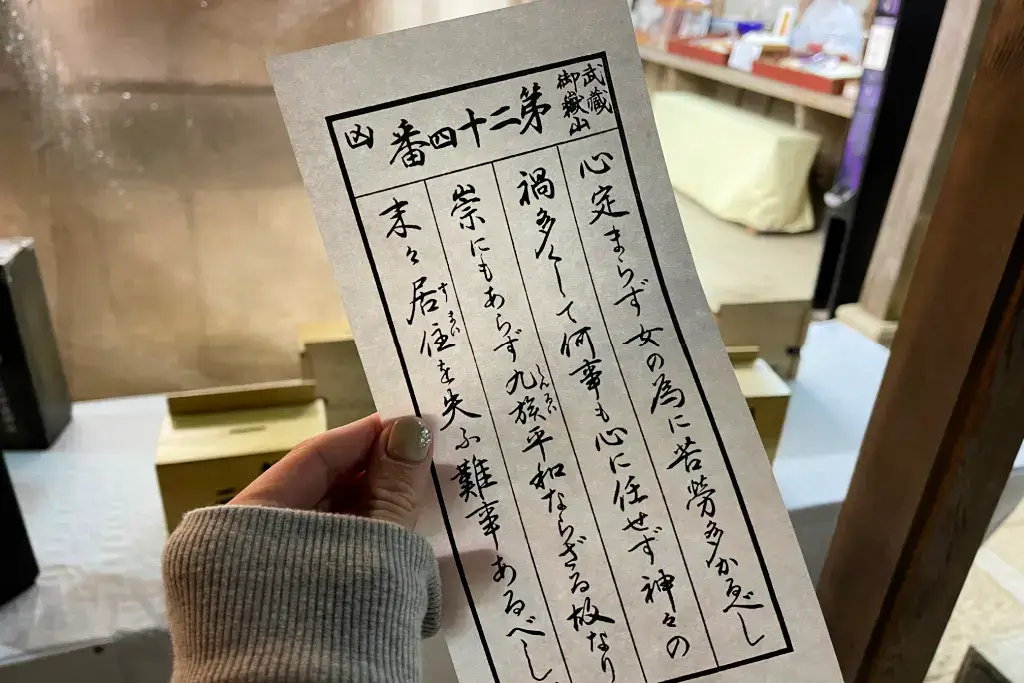 武蔵
御嶽山
第二十四番
凶
心定まらず女の為に苦勞多かるべし
禍多くして何事も心に任せず神々の
崇にもあらず九族平和ならざる故なり
しんるい
末々居住を失ふ難事あるべし
すまい